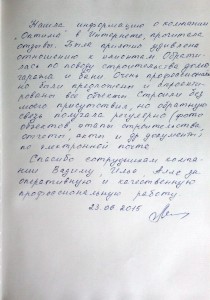 Нашла информацию о компании
"Оптима" в Интернете, прочитала
отзывы. Была приятно удивлена
отношению к клиентам. Обрати-
лась по поводу строительства дома
гаража и бани. Очень профессиональ-
но были предложены и
рованы объекты. Строили без
моего присутствия, но обратную
связь получала регулярно (фото
объектов, этапы строительства,
отчеты, акты и др. документы)
по электронной почте.
Спасибо сотрудникам компа-
нии Вадиму, Илье, за
оперативную и качественную
профессиональную работу.
23.06.2015